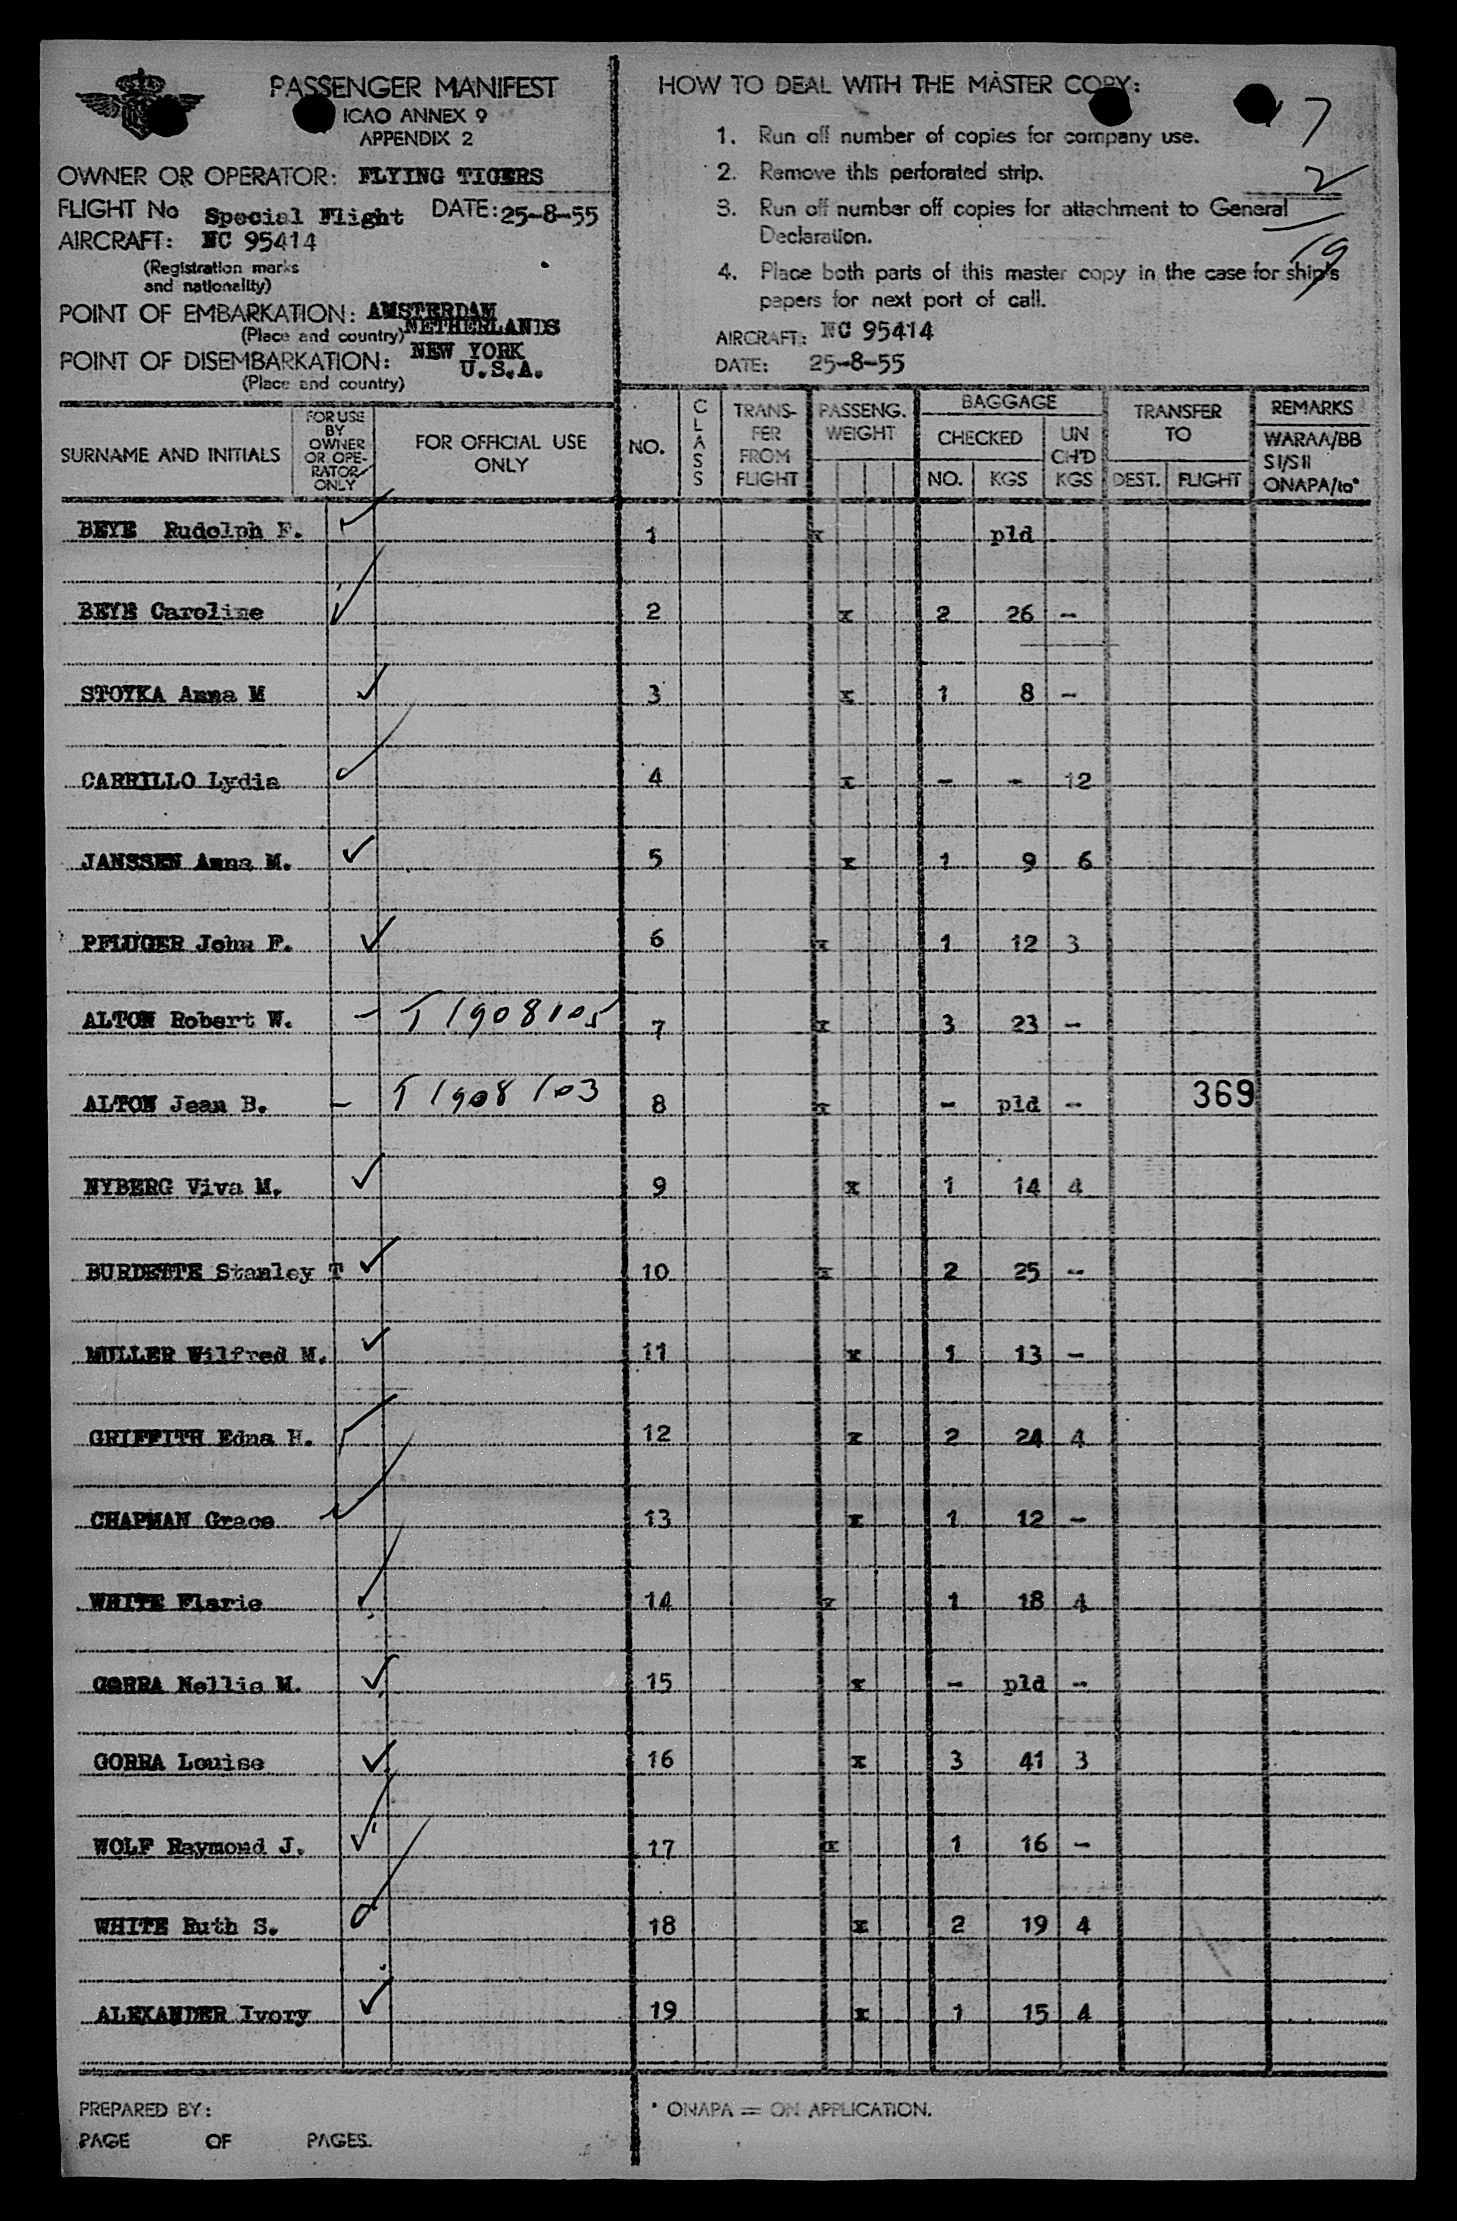 PASSENGER MANIFEST
ICAO ANNEX 9
APPENDIX 2
OWNER OR OPERATOR: FLYING TIGERS
FLIGHT No Special Flight DATE: 25-8-55
AIRCRAFT: NC 95414
(Registration marks
and nationality)
POINT OF EMBARKATION: AMSTERDAM
(Place and country) NETHERLANDS
POINT OF DISEMBARKATION: NEW YORK
U.S.A.
(Place and country)
HOW TO DEAL WITH THE MASTER COPY:
1. Run off number of copies for company use.
2. Remove this perforated strip.
3. Run off number off copies for attachment to General
Declaration.
4. Place both parts of this master copy in the case for ship's
papers for next port of call.
AIRCRAFT: NC 95414
DATE: 25-8-55
17
2
19
SURNAME AND INITIALS
FOR USE
BY
OWNER
OR OPE-
RATOR
ONLY
FOR OFFICIAL USE
ONLY
NO.
CLASS
TRANS-
FER
FROM
FLIGHT
PASSENG.
WEIGHT
BAGGAGE
CHECKED
NO. KGS
UN
CH'D
KGS
TRANSFER
TO
DEST. FLIGHT
REMARKS
WARAA/BB
SI/SII
ONAPA/to*
BEYE Rudolph F. 1 x pld
BEYE Caroline 2 x 2 26 -
STOYKA Anna M 3 x 1 8 -
CARRILLO Lydia 4 x - - 12
JANSSEN Anna M. 5 x 1 9 6
PFLUGER John F. 6 x 1 12 3
ALTON Robert W. - T1908105 7 x 3 23 -
ALTON Jean B. - T1908103 8 x - pld - 369
NYBERG Viva M. 9 x 1 14 4
BURDETTE Stanley T 10 x 2 25 -
MULLER Wilfred M. 11 x 1 13 -
GRIFFITH Edna H. 12 x 2 24 4
CHAPMAN Grace 13 x 1 12 -
WHITE Flarie 14 x 1 18 4
GORRA Nellie M. 15 x - pld -
GORRA Louise 16 x 3 41 3
WOLF Raymond J. 17 x 1 16 -
WHITE Ruth S. 18 x 2 19 4
ALEXANDER Ivory 19 x 1 15 4
PREPARED BY:
PAGE OF PAGES.
* ONAPA = ON APPLICATION.